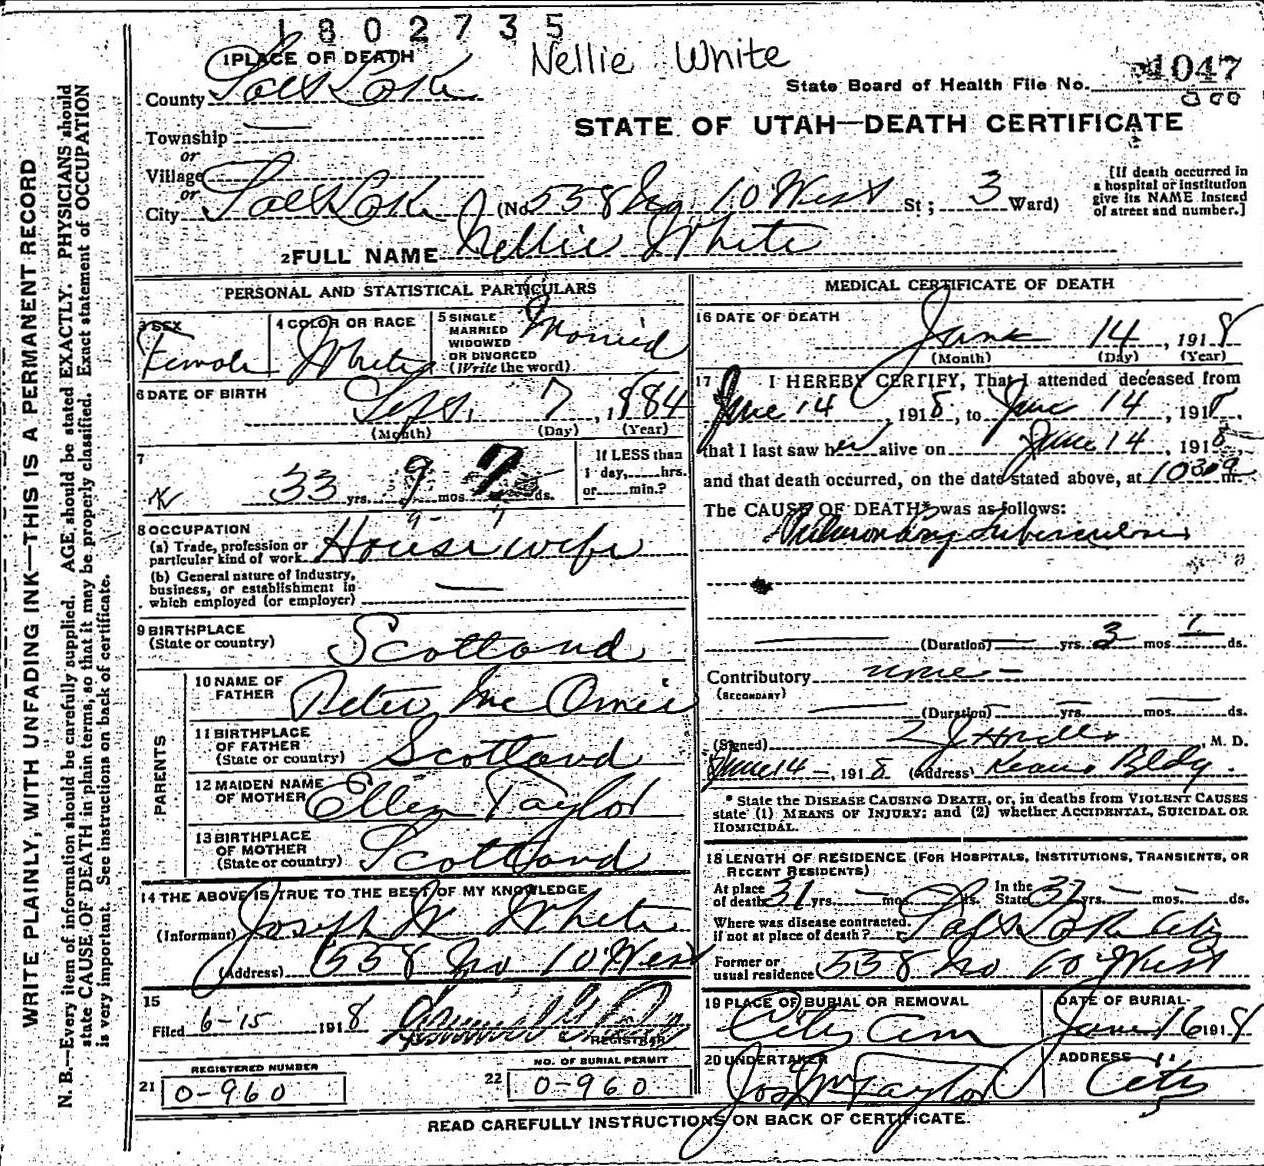 1802735
Nellie White
1 PLACE OF DEATH
State Board of Health File No. 1047
County Salt Lake
STATE OF UTAH—DEATH CERTIFICATE
Township —
or
Village
or
City Salt Lake (No 538 No. 10 West St; 3 Ward)
[If death occurred in
a hospital or institution
give its NAME instead
of street and number.]
2 FULL NAME Nellie White
PERSONAL AND STATISTICAL PARTICULARS
3 SEX
Female
4 COLOR OR RACE
White
5 SINGLE
MARRIED
WIDOWED
OR DIVORCED
(Write the word)
Married
6 DATE OF BIRTH
Sept. 7, 1884
(Month) (Day) (Year)
7
33 yrs. 9 mos. 7 ds.
If LESS than
1 day,......hrs.
or......min.?
9 7
8 OCCUPATION
(a) Trade, profession or
particular kind of work Housewife
(b) General nature of industry,
business, or establishment in
which employed (or employer) —
9 BIRTHPLACE
(State or country) Scotland
PARENTS
10 NAME OF
FATHER Peter Mc Omie
11 BIRTHPLACE
OF FATHER
(State or country) Scotland
12 MAIDEN NAME
OF MOTHER Ellen Taylor
13 BIRTHPLACE
OF MOTHER
(State or country) Scotland
14 THE ABOVE IS TRUE TO THE BEST OF MY KNOWLEDGE
(Informant) Joseph W. White
(Address) 538 No 10 West
15
Filed 6-15 1918
REGISTRAR
REGISTERED NUMBER
21 0-960
NO. OF BURIAL PERMIT
22 0-960
MEDICAL CERTIFICATE OF DEATH
16 DATE OF DEATH
June 14, 1918
(Month) (Day) (Year)
17 I HEREBY CERTIFY, That I attended deceased from
June 14, 1918, to June 14, 1918,
that I last saw her alive on June 14, 1918
and that death occurred, on the date stated above, at 1030 a m.
The CAUSE OF DEATH* was as follows:
Pulmonary Tuberculosis
(Duration) — yrs. 3 mos 1 ds.
Contributory none —
(SECONDARY)
(Duration) — yrs. — mos. — ds.
(Signed) M. D.
June 14 —, 1918 (Address) Kearns Bldg.
* State the DISEASE CAUSING DEATH, or, in deaths from VIOLENT CAUSES
state (1) MEANS OF INJURY; and (2) whether ACCIDENTAL, SUICIDAL OR
HOMICIDAL.
18 LENGTH OF RESIDENCE (FOR HOSPITALS, INSTITUTIONS, TRANSIENTS, OR
RECENT RESIDENTS)
At place
of death 31 yrs. — mos. ds.
In the
State yrs. — mos. — ds.
Where was disease contracted,
if not at place of death? Salt Lake City
Former or
usual residence 538 No 10 West
19 PLACE OF BURIAL OR REMOVAL
City Cem
DATE OF BURIAL
June 16 1918
20 UNDERTAKER
Jos Wm Taylor
ADDRESS
City
READ CAREFULLY INSTRUCTIONS ON BACK OF CERTIFICATE.
WRITE PLAINLY, WITH UNFADING INK—THIS IS A PERMANENT RECORD
N. B.—Every item of information should be carefully supplied. AGE should be stated EXACTLY. PHYSICIANS should
state CAUSE OF DEATH in plain terms, so that it may be properly classified. Exact statement of OCCUPATION
is very important. See instructions on back of certificate.